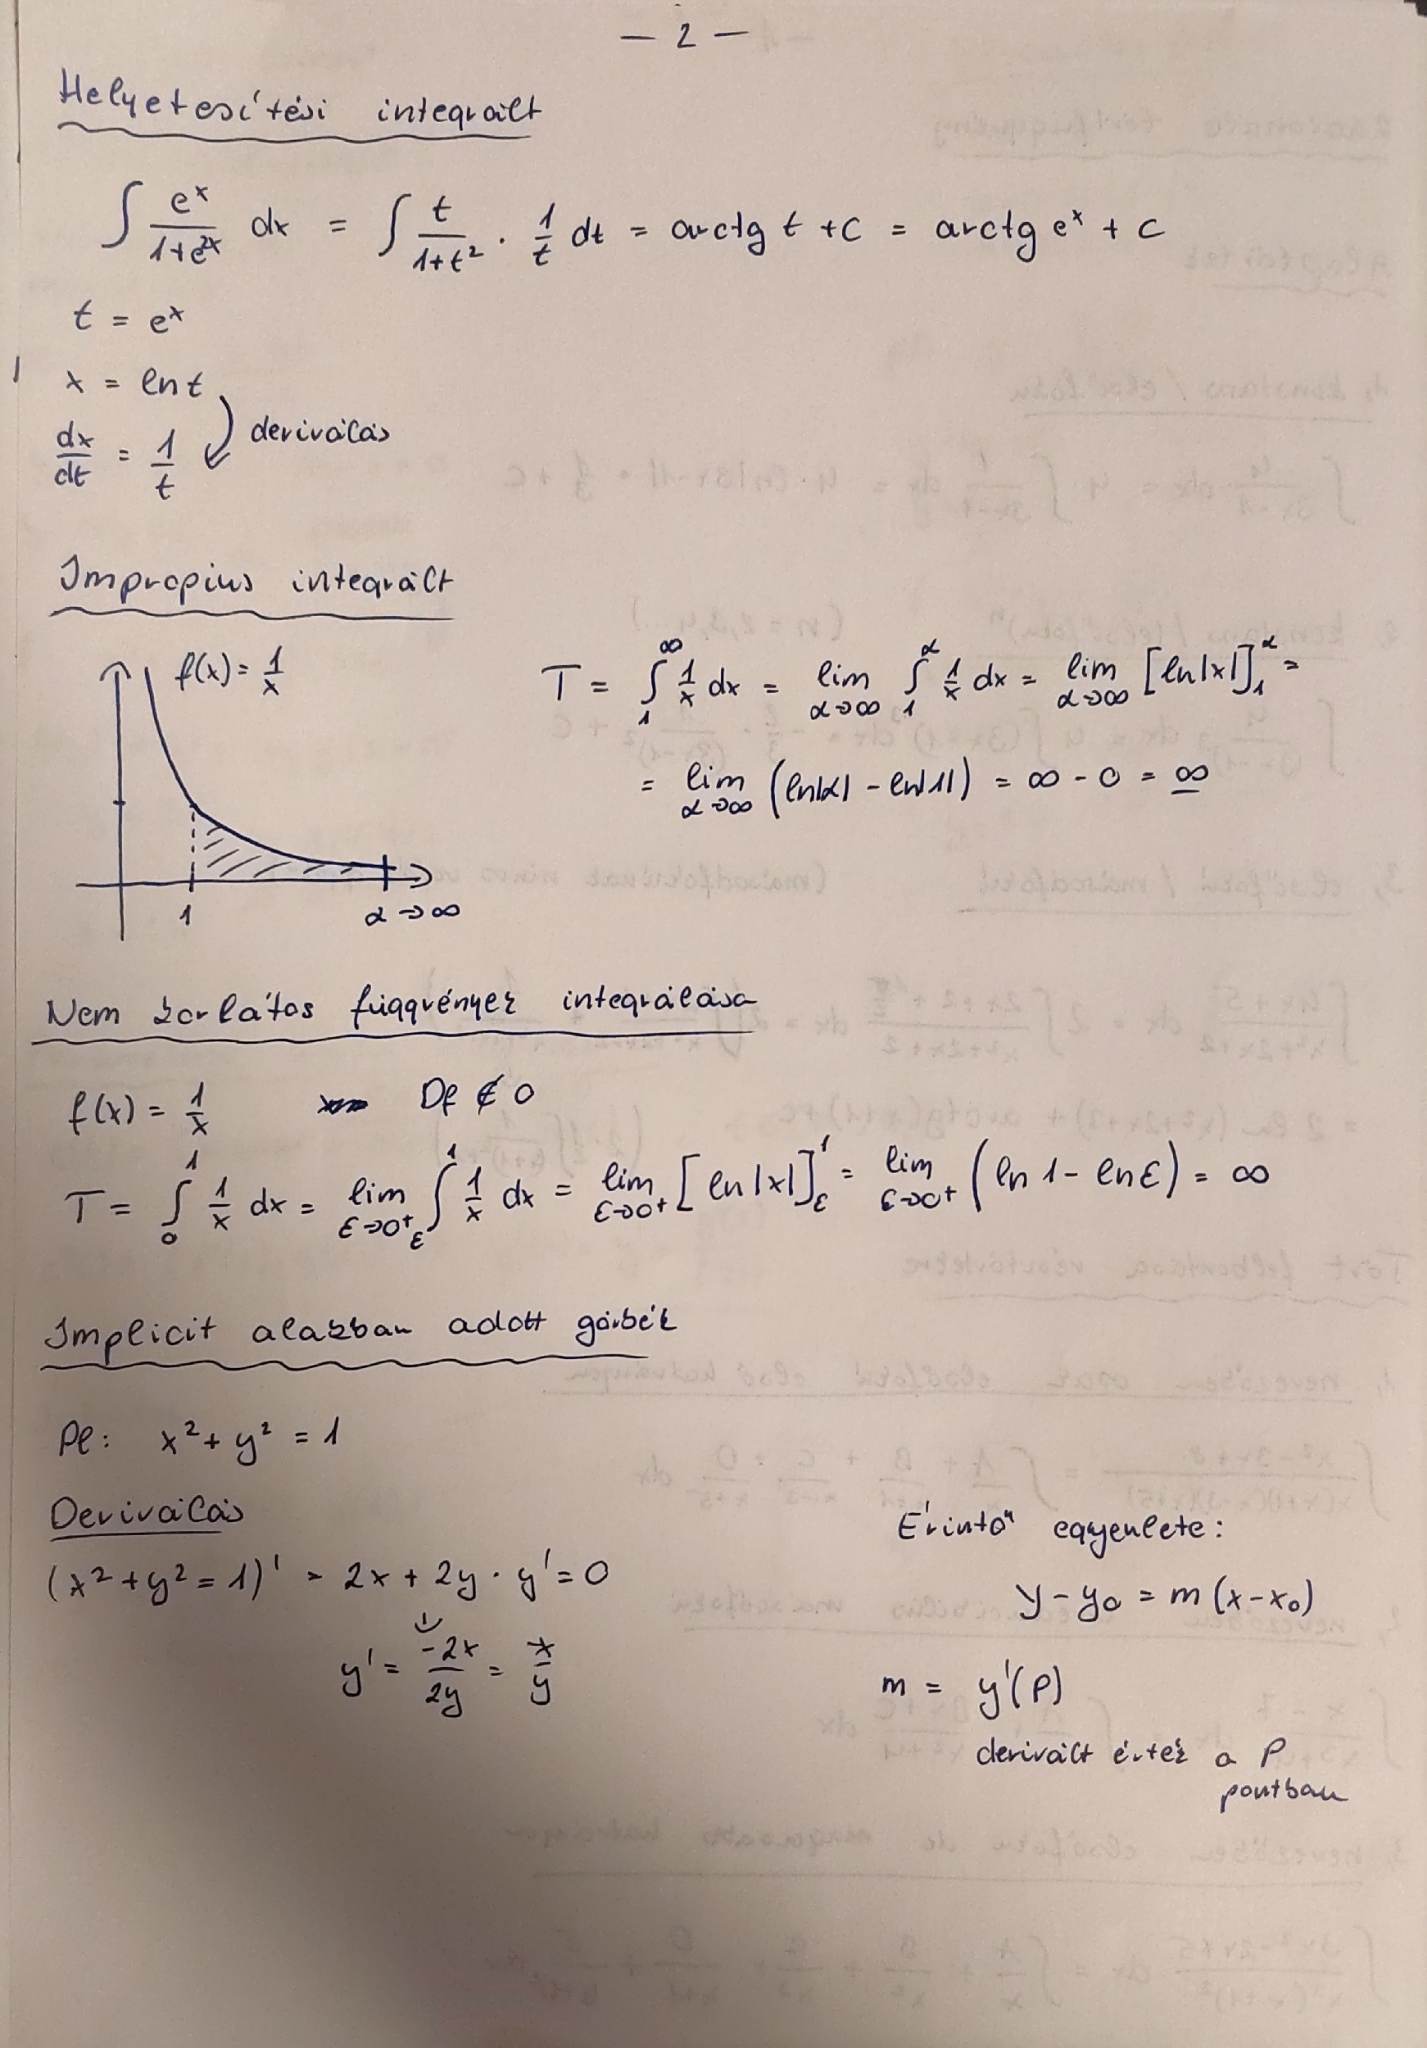 — 2 —
Helyetesítési integrált
∫ e^x/(1+e^2x) dx = ∫ t/(1+t²) · 1/t dt = arctg t + C = arctg e^x + C
t = e^x
x = ln t
dx/dt = 1/t deriválás
Impropius integrált
f(x) = 1/x
1
α→∞
T = ∫₁^∞ 1/x dx = lim α→∞ ∫₁^α 1/x dx = lim α→∞ [ln|x|]₁^α =
= lim α→∞ (ln|α| - ln|1|) = ∞ - 0 = ∞
Nem korlátos függvények integrálása
f(x) = 1/x Df ∉ 0
T = ∫₀^1 1/x dx = lim ε→0⁺ ∫_ε^1 1/x dx = lim ε→0⁺ [ln|x|]_ε^1 = lim ε→0⁺ (ln 1 - ln ε) = ∞
Implicit alakban adott görbék
Pl: x² + y² = 1
Deriválás
(x² + y² = 1)' = 2x + 2y · y' = 0
y' = -2x/2y = x/y
Érintő egyenlete:
y - y₀ = m (x - x₀)
m = y'(P)
derivált érték a P
pontban